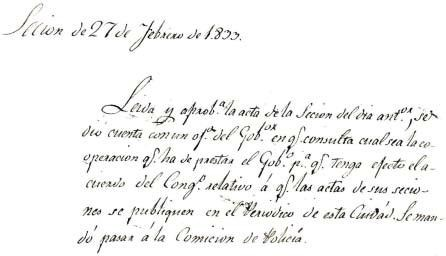 Secion de 27 de Febrero de 1.833.
Leida y aprob.ª la acta de la Secion del dia ant.or, se
dió cuenta con un of.º del Gob.or en q.e consulta cual sea la co-
operacion q.e ha de prestar el Gob.º p.ª q.e tenga efecto el a-
cuerdo del Cong.º relativo á q.e las actas de sus secio-
nes se publiquen en el Periodico de esta Ciudad. Se man-
dó pasar á la Comicion de Policía.